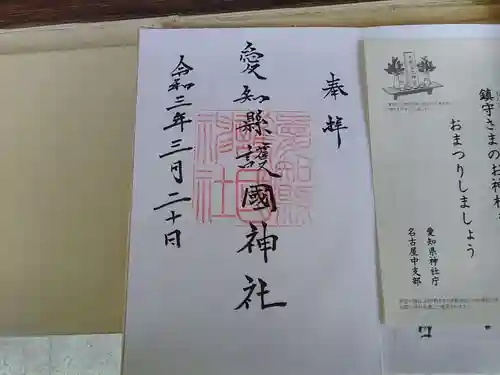 奉拝
愛知縣護國神社
令和三年三月二十日
愛知縣護國神社
鎮守さまのお神札
おまつりしましょう
愛知県神社庁
名古屋中支部